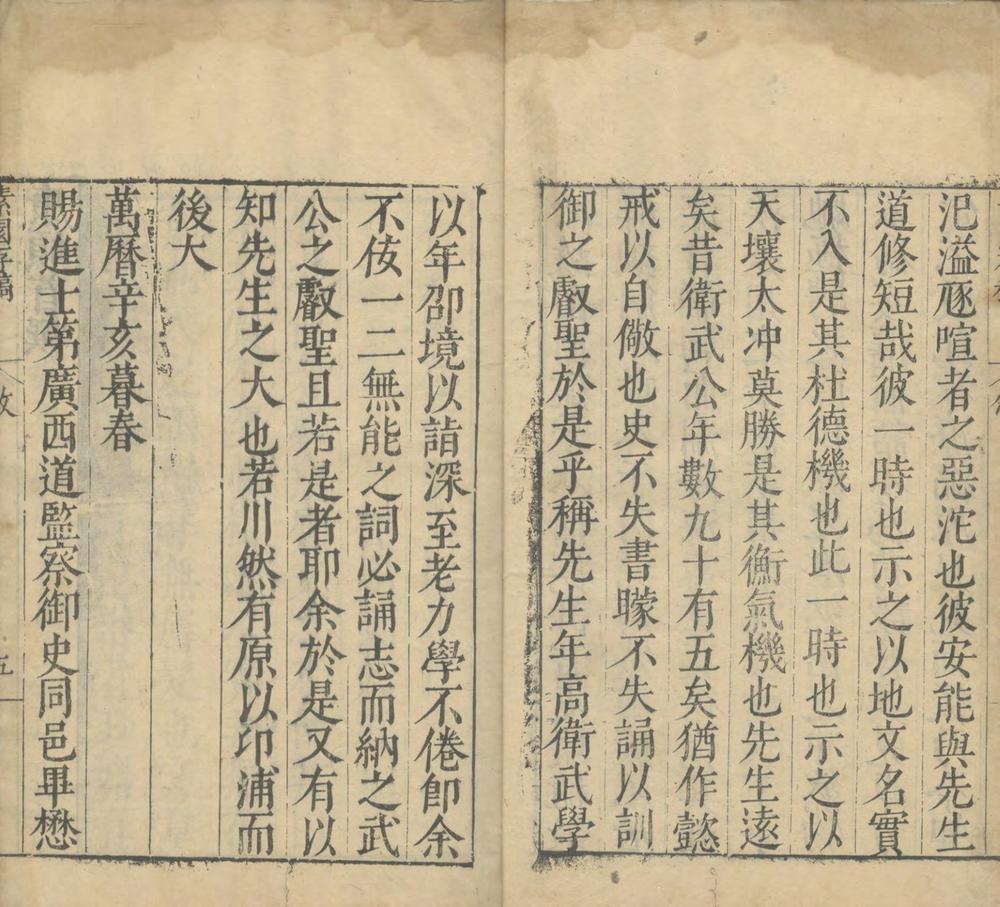 汜溢豗喧者之惡沱也彼安能與先生
道修短哉彼一時也示之以地文名實
不入是其杜德機也此一時也示之以
天壤太冲莫勝是其衡氣機也先生遠
矣昔衛武公年數九十有五矣猶作懿
戒以自儆也史不失書矇不失誦以訓
御之叡聖於是乎稱先生年高衛武學
以年卲境以詣深至老力學不倦卽余
不佞一二無能之詞必誦志而納之武
公之叡聖且若是者耶余於是又有以
知先生之大也若川然有原以卬浦而
後大
萬曆辛亥暮春
賜進士第廣西道監察御史同邑畢懋